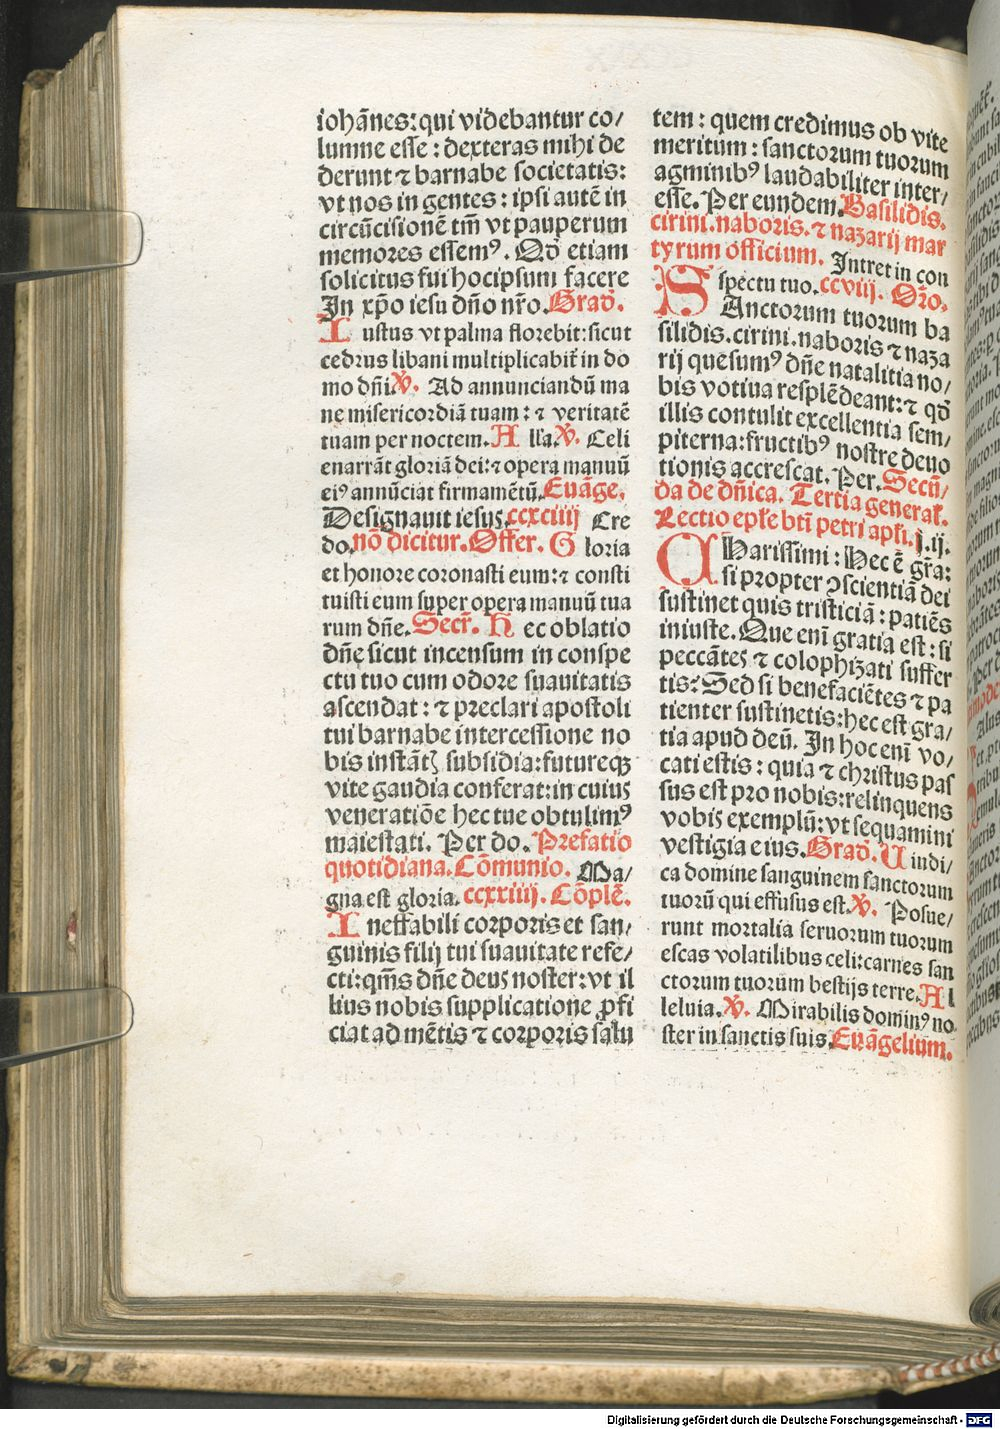 iohãnes: qui videbantur co/
lumne esse: dexteras mihi de
derunt ⁊ barnabe societatis:
vt nos in gentes: ipsi autẽ in
circũcisionẽ tm̃ vt pauperum
memores essemꝰ. Qd̃ etiam
solicitus fui hocipsum facere
In xp̃o iesu dño nr̃o. Grad̃.
Iustus vt palma florebit: sicut
cedrus libani multiplicabit̃ in do
mo dñi ℣. Ad annunciandũ ma
ne misericordiã tuam: ⁊ veritatẽ
tuam per noctem. Allã. ℣. Celi
enarrãt gloriã dei: ⁊ opera manuũ
eiꝰ annũciat firmamẽtũ. Euãge.
Designauit iesus. ccxciiij Cre
do. nõ dicitur. Offer. Gloria
et honore coronasti eum: ⁊ consti
tuisti eum super opera manuũ tua
rum dñe. Secr̃. Hec oblatio
dñe sicut incensum in conspe
ctu tuo cum odore suauitatis
ascendat: ⁊ preclari apostoli
tui barnabe intercessione no
bis instãtꝫ subsidia: futureqꝫ
vite gaudia conferat: in cuius
veneratiõe hec tue obtulimꝰ
maiestati. Per do. Prefatio
quotidiana. Cõmunio. Ma/
gna est gloria. ccxxiiij. Cõplẽ.
Ineffabili corporis et san/
guinis filij tui suauitate refe/
cti: qm̃s dñe deus noster: vt il
lius nobis supplicatione ꝓfi
ciat ad mẽtis ⁊ corporis salu
tem: quem credimus ob vite
meritum: sanctorum tuorum
agminibꝰ laudabiliter inter/
esse. Per eundem. Basilidis.
cirini. naboris. ⁊ nazarij mar
tyrum officium. Intret in con
spectu tuo. ccviij. Or̃o.
Sanctorum tuorum ba
silidis. cirini. naboris ⁊ naza
rij quesumꝰ dñe natalitia no/
bis votiua resplẽdeant: ⁊ qd̃
illis contulit excellentia sem/
piterna: fructibꝰ nostre deuo
tionis accrescat. Per. Secũ/
da de dñica. Tertia general̃.
Lectio epl̃e bt̃i petri apl̃i. j. ij.
Charissimi: Hec ẽ gr̃a:
si propter ꝯscientiã dei
sustinet quis tristiciã: patiẽs
iniuste. Que eni̅ gratia est: si
peccãtes ⁊ colophizati suffer
tis? Sed si benefaciẽtes ⁊ pa
tienter sustinetis: hec est gra/
tia apud deũ. In hoc eni̅ vo/
cati estis: quia ⁊ christus pas
sus est pro nobis: relinquens
vobis exemplũ: vt sequamini
vestigia eius. Grad̃. Uindi/
ca domine sanguinem sanctorum
tuorũ qui effusus est. ℣. Posue/
runt mortalia seruorum tuorum
escas volatilibus celi: carnes san
ctorum tuorum bestijs terre. Al
leluia. ℣. Mirabilis dominꝰ no
ster in sanctis suis. Euãgelium.
Digitalisierung gefördert durch die Deutsche Forschungsgemeinschaft - DFG